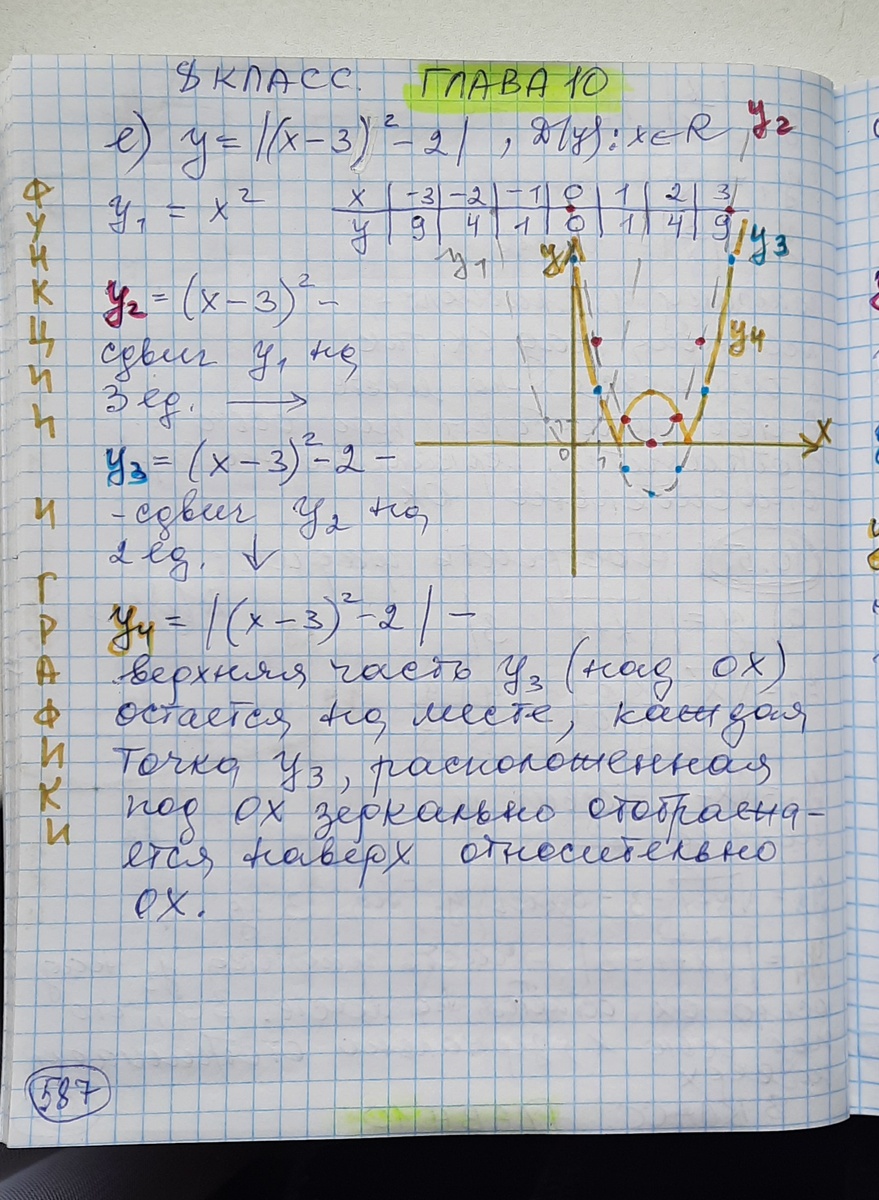 8 КЛАСС. ГЛАВА 10
е) y = |(x-3)² - 2|, D(y): x ∈ R
y₁ = x²
x | -3 | -2 | -1 | 0 | 1 | 2 | 3
y | 9 | 4 | 1 | 0 | 1 | 4 | 9
y₂ = (x-3)² -
сдвиг y₁ на
3 ед. →
y₃ = (x-3)² - 2 -
- сдвиг y₂ на
2 ед. ↓
y₄ = |(x-3)² - 2| -
верхняя часть y₃ (над ОХ)
остается на месте, каждая
точка y₃, расположенная
под ОХ зеркально отображa-
ется наверх относительно
ОХ.
ФУНКЦИИ И ГРАФИКИ
y₂
y₁
y
y₃
y₄
x
0
1
1
587